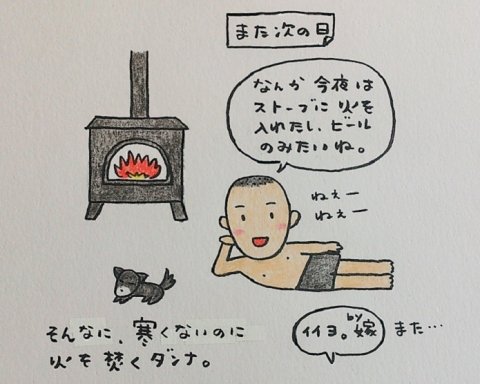 また次の日
なんか 今夜は
ストーブに 火を
入れたし、ビール
のみたいね。
ねぇー
ねぇー
そんなに、寒くないのに
火を 焚くダンナ。
イイヨ。by嫁
また…